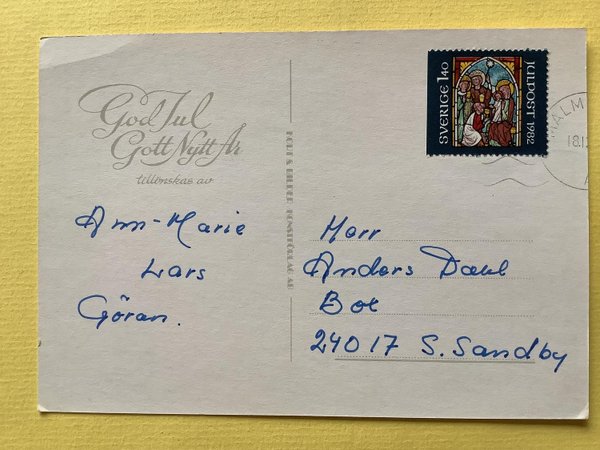 God Jul
Gott Nytt År
tillönskas av
Ann-Marie
Lars
Göran.
SVERIGE 1.40
JULPOST 1982
MALM
18.1
Herr
Anders Dahl
Box
240 17 S. Sandby